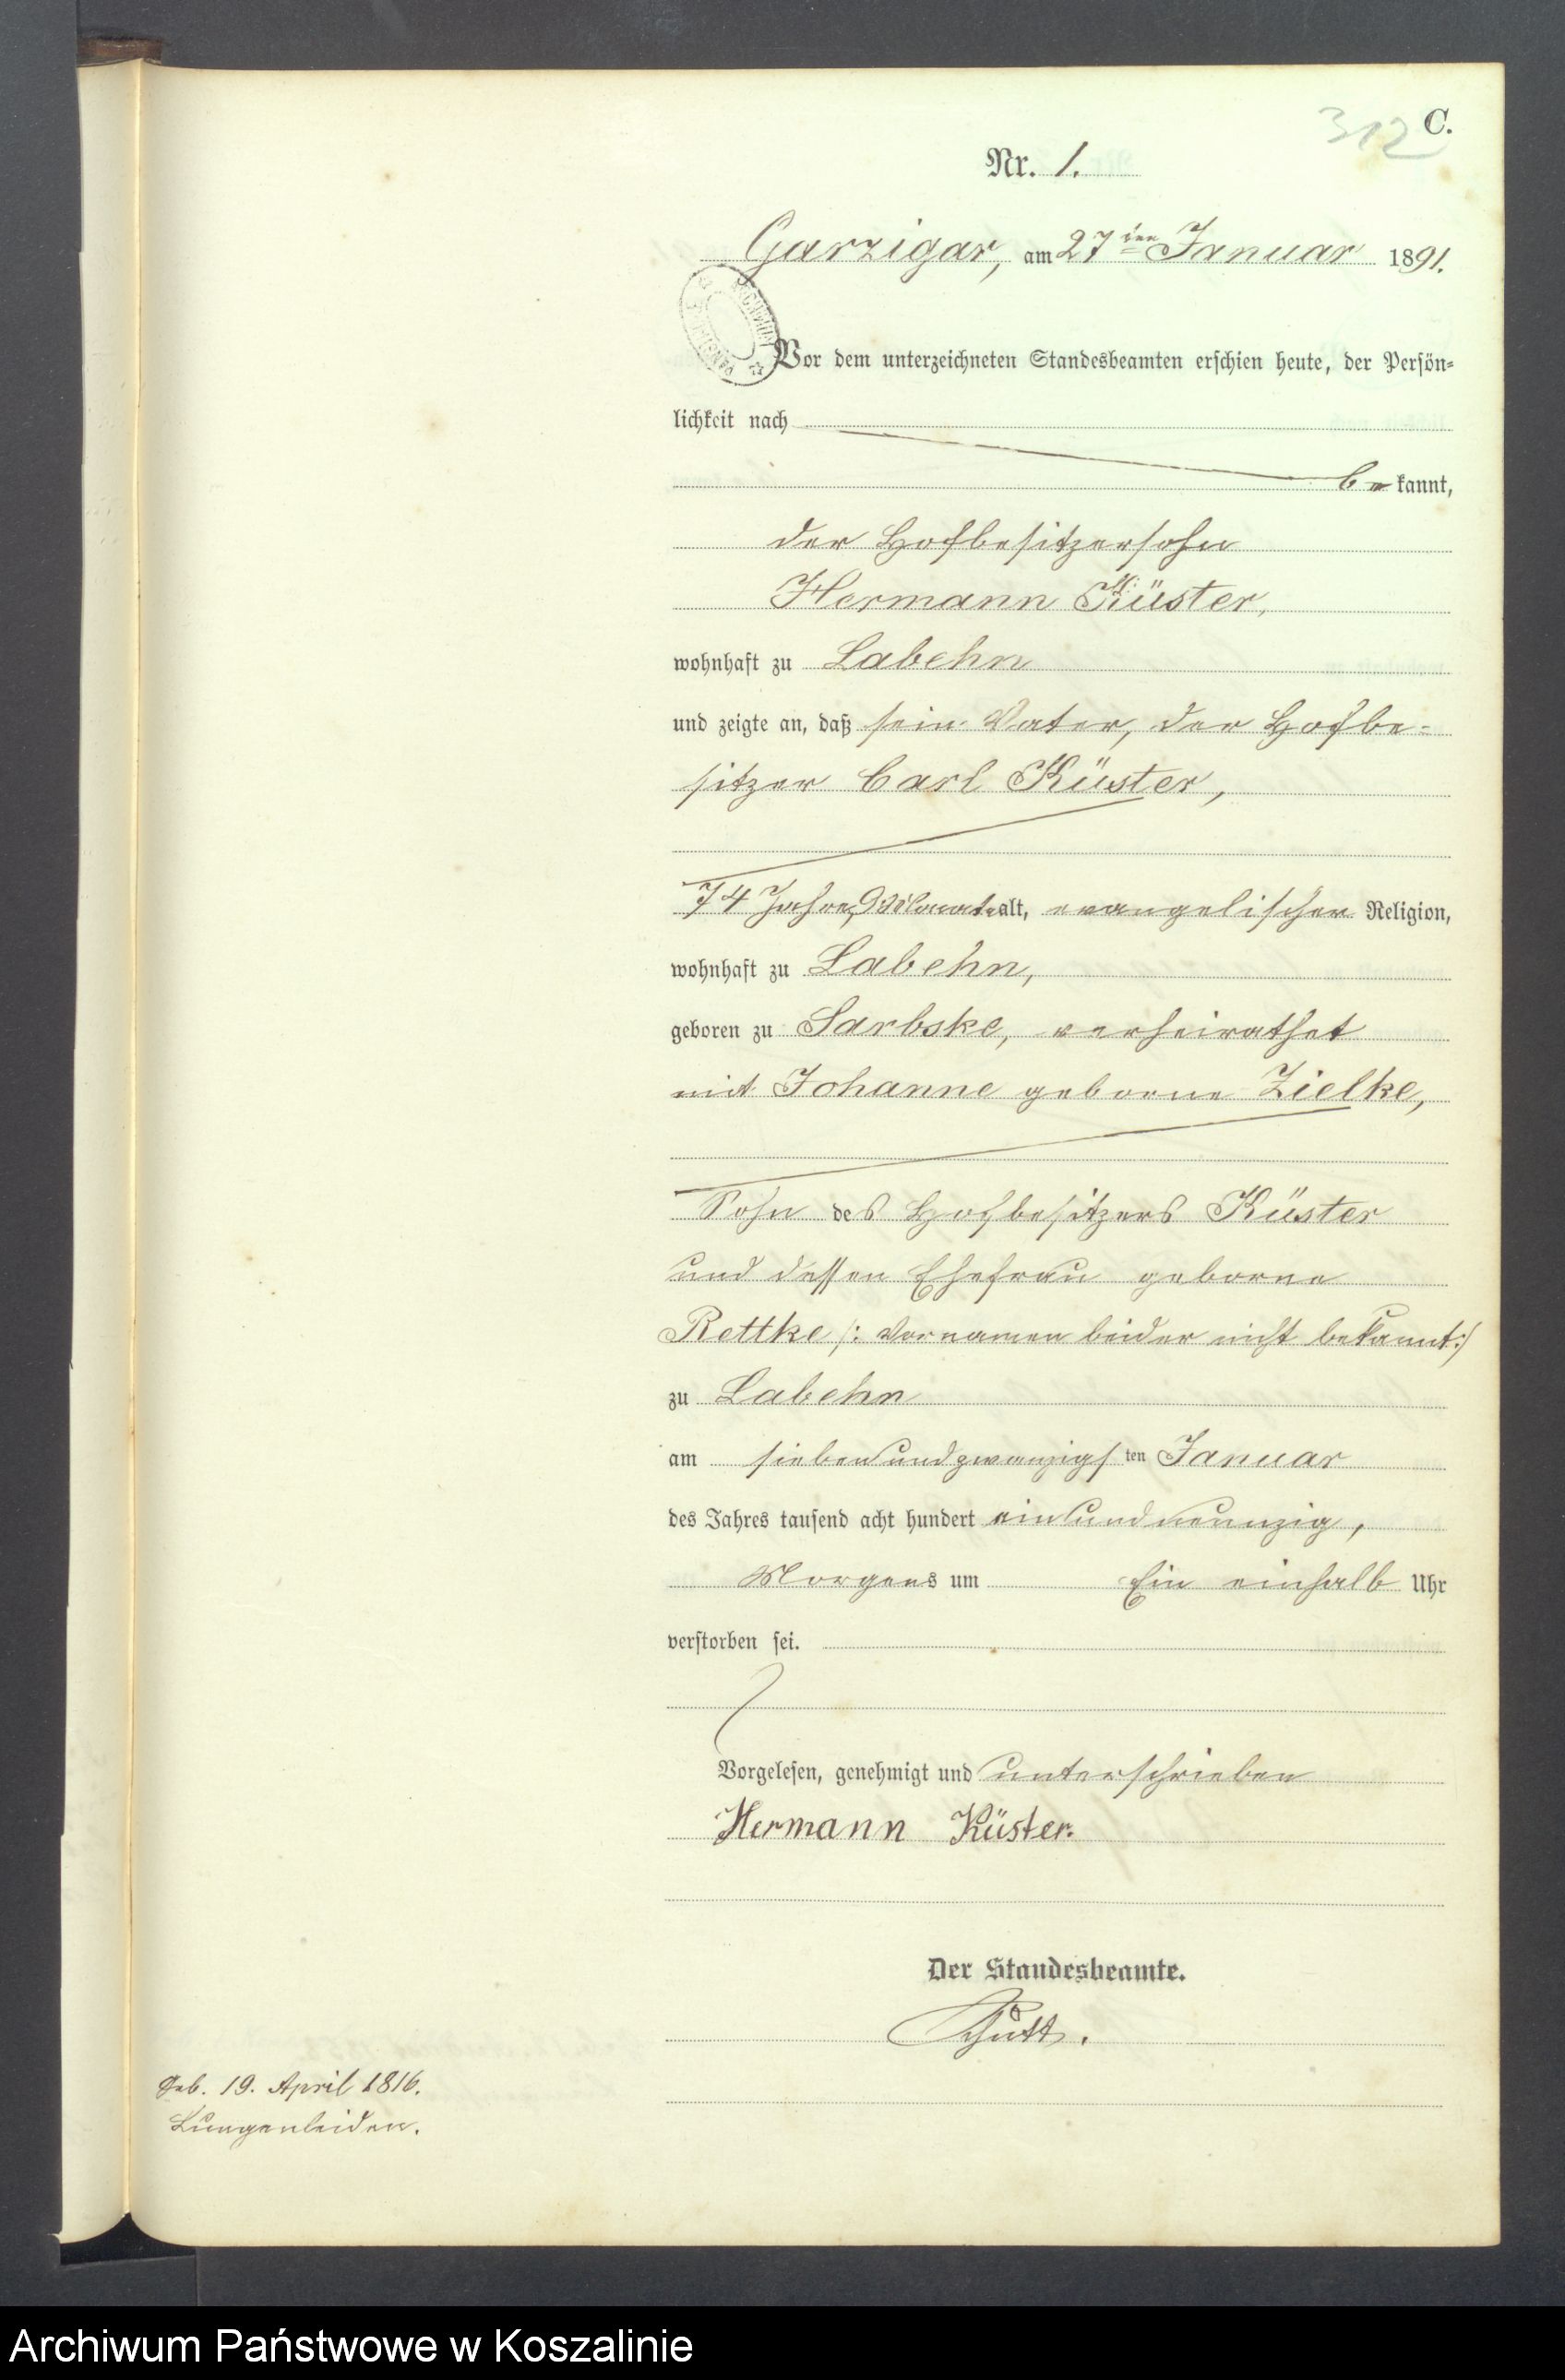 312 C.
Nr. 1.
Garzigar, am 27ten Januar 1891.
Vor dem unterzeichneten Standesbeamten erschien heute, der Persön-
lichkeit nach
bekannt,
der Hofbesitzersohn
Hermann Küster,
wohnhaft zu Labehn
und zeigte an, daß sein Vater, der Hofbe-
sitzer Carl Küster,
74 Jahre, 9 Monate alt, evangelischer Religion,
wohnhaft zu Labehn,
geboren zu Sarbske, verheirathet
mit Johanne geborne Zielke,
Sohn des Hofbesitzers Küster
und dessen Ehefrau geborne
Rettke /: Vornamen beider nicht bekannt :/
zu Labehn
am siebenundzwanzigsten Januar
des Jahres tausend acht hundert einundneunzig,
Morgens um Ein einhalb Uhr
verstorben sei.
Vorgelesen, genehmigt und unterschrieben
Hermann Küster.
Der Standesbeamte.
Geb. 19. April 1816.
Lungenleiden.
Archiwum Państwowe w Koszalinie